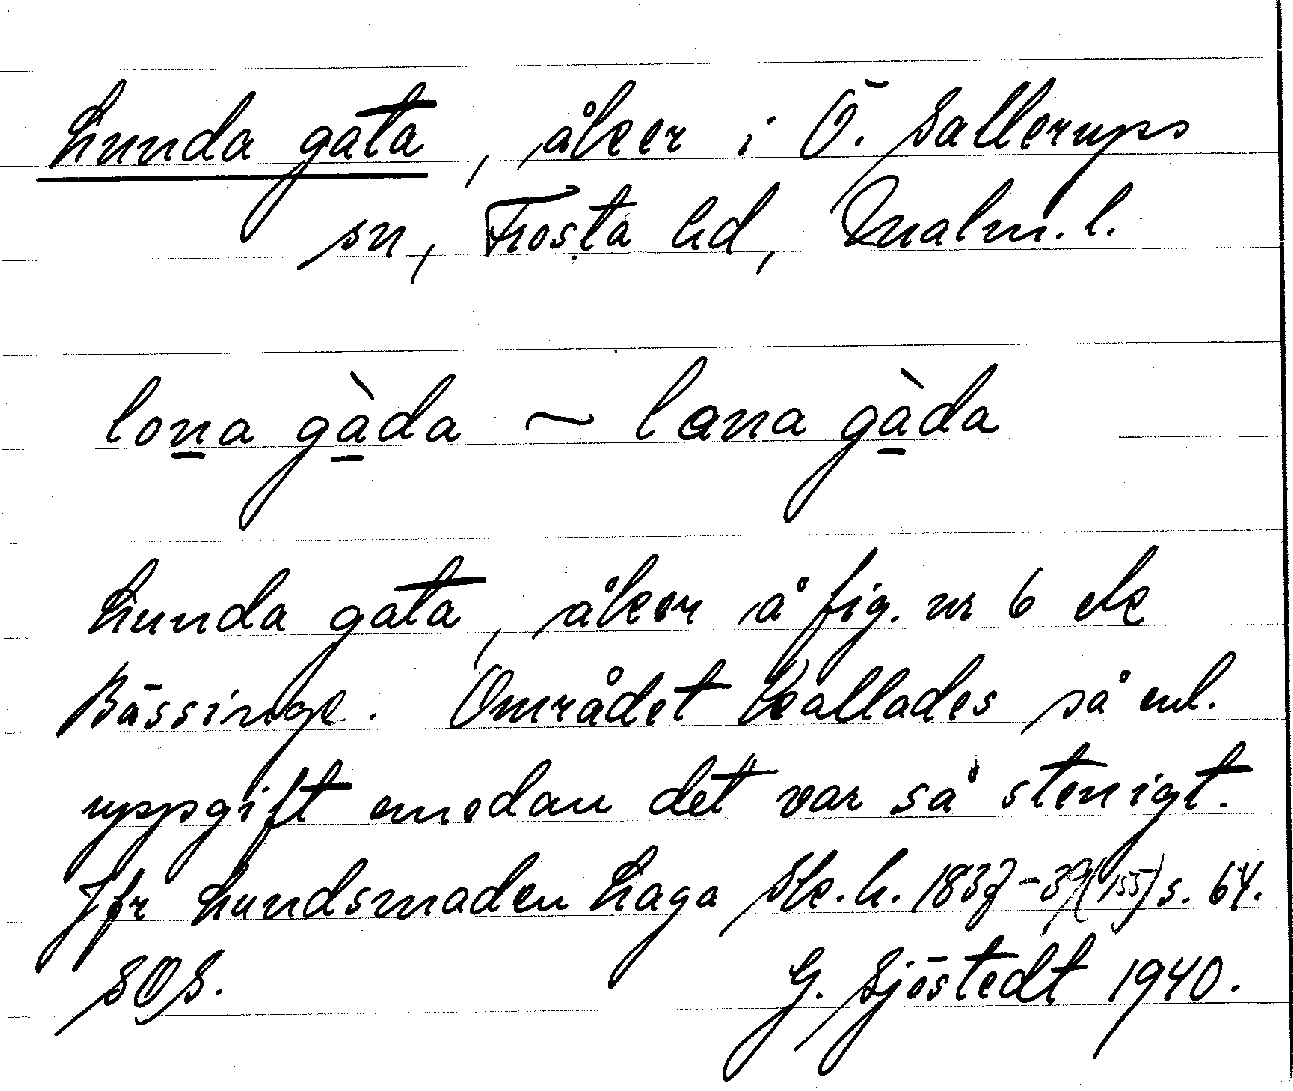 Lunda gata, åker i Ö. Sallerups
sn, Frosta hd, Malm. l.
lona gàda ~ lana gàda
Lunda gata, åker å fig. nr 6 ek
Bässinge. Området kallades så enl.
uppgift emedan det var så stenigt.
Jfr Lundsmaden Laga Sk. h. 1837-39(155) s. 64.
SOS. G. Sjöstedt 1940.